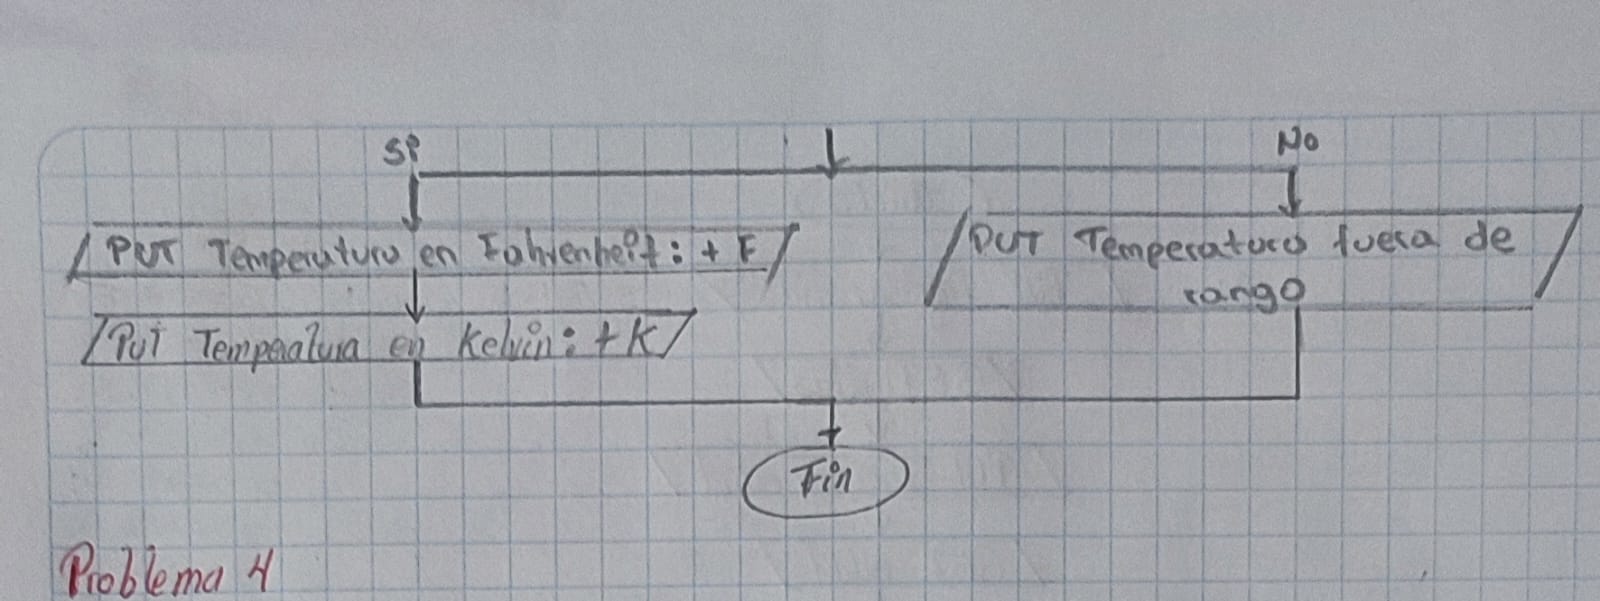 Si No
PUT Temperatura en Fahrenheit: + F
PUT Temperatura fuera de
rango
PUT Temperatura en Kelvin: + K
Fin
Problema 4